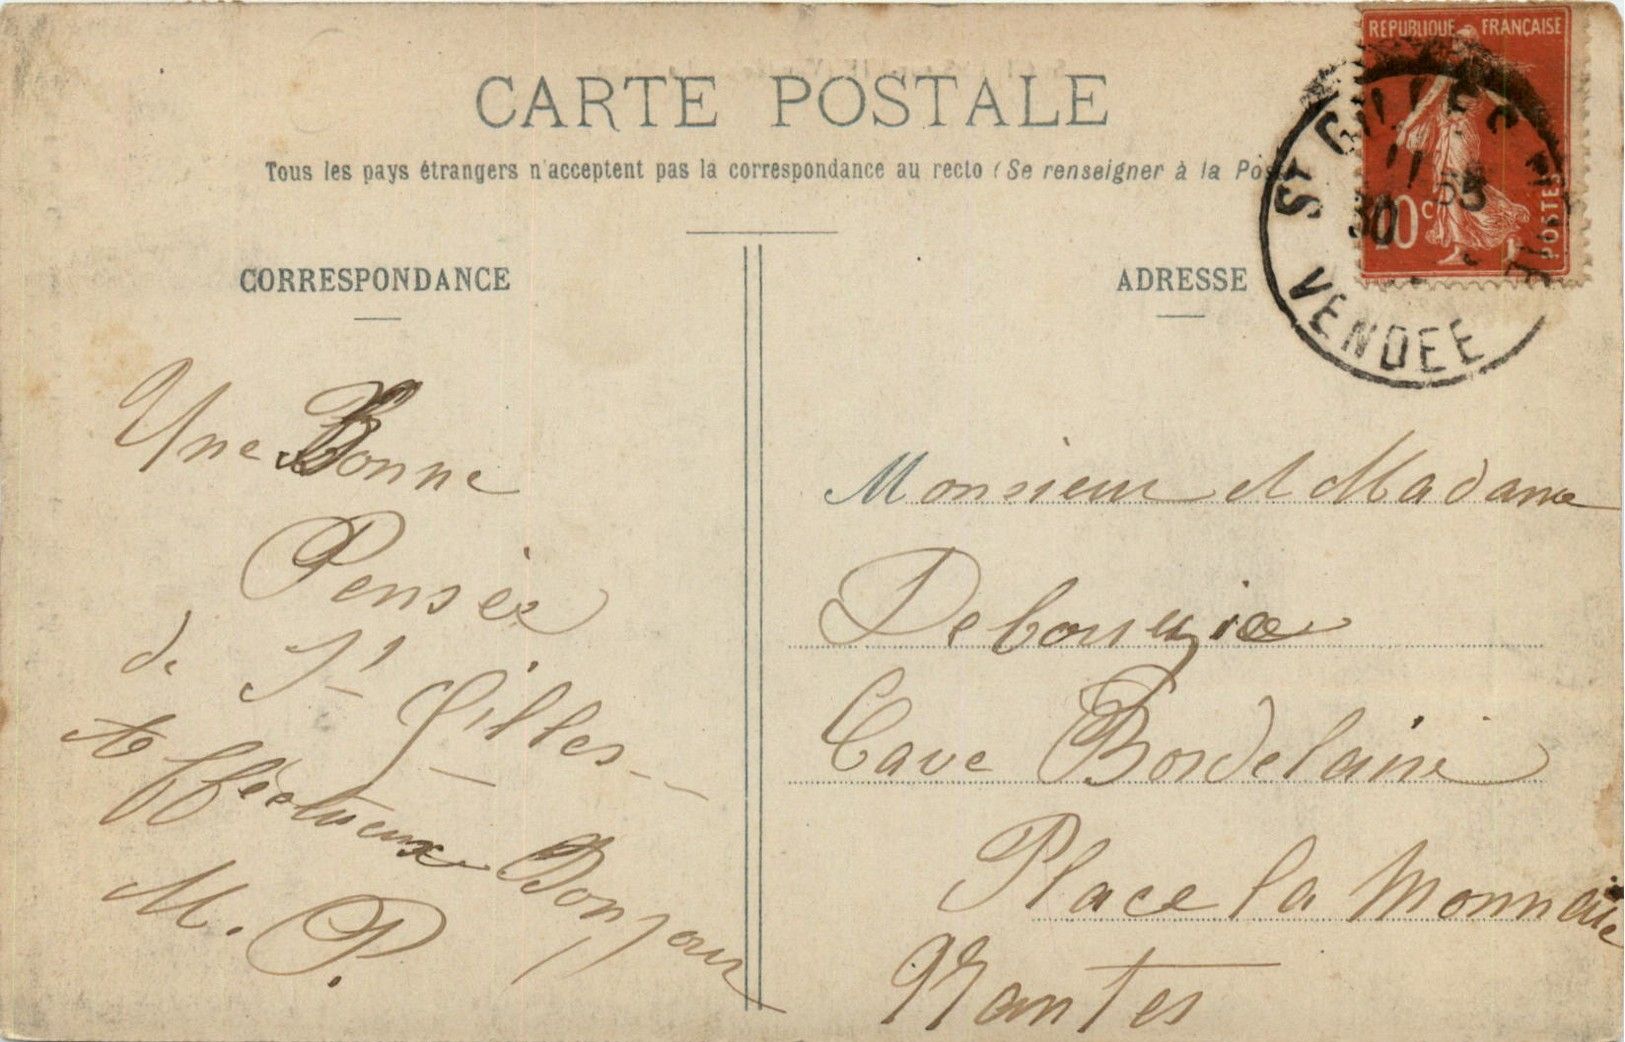 CARTE POSTALE
Tous les pays étrangers n'acceptent pas la correspondance au recto (Se renseigner à la Pos
CORRESPONDANCE
Une Bonne
Pensée
de St Gilles
Affectueux Bonjour
M. P.
REPUBLIQUE FRANÇAISE
10 c
POSTES
ST GILLES
VENDEE
ADRESSE
Monsieur et Madame
Cave Bordelaise
Place la Monnaie
Nantes